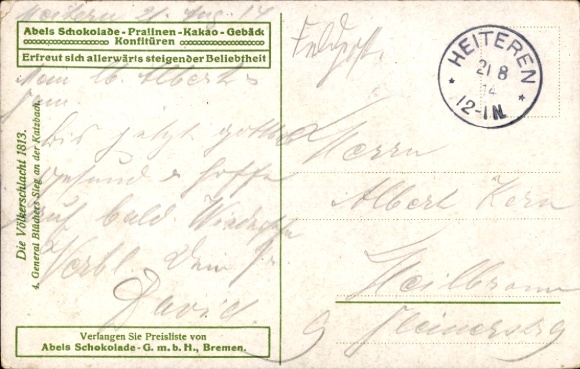 Heiteren 21. Aug. 14
Abels Schokolade - Pralinen - Kakao - Gebäck
Konfitüren
Erfreut sich allerwärts steigender Beliebtheit
Mein lb. Albert
Bis jetzt gottlob
gesund & hoffe
auf bald. Wiedersehn
Verbl. Dein
David.
Die Völkerschlacht 1813.
4. General Blüchers Sieg an der Katzbach.
Verlangen Sie Preisliste von
Abels Schokolade - G. m. b. H., Bremen.
Feldpost.
HEITEREN
21 8
14
12-1N.
Herrn
Albert Kern
Heilbronn